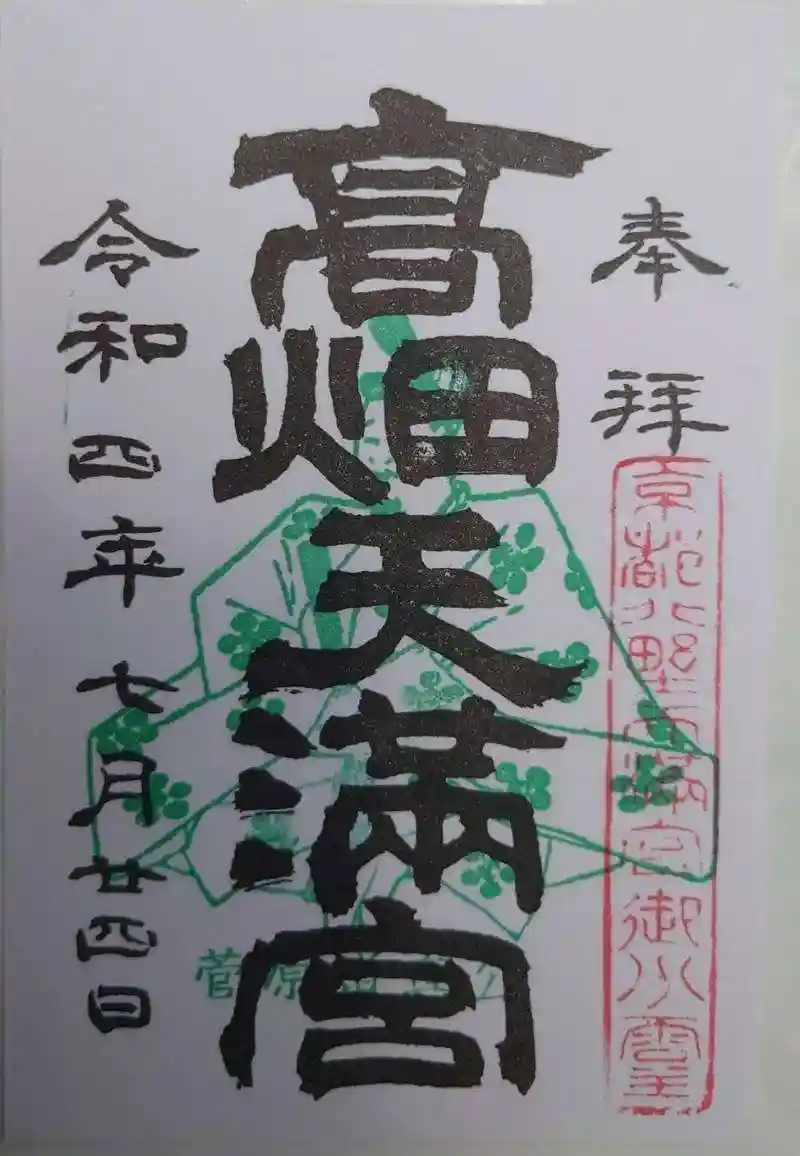 奉拝
京都北野天満宮御分霊
髙畑天満宮
菅原道真公
令和四年七月廿四日